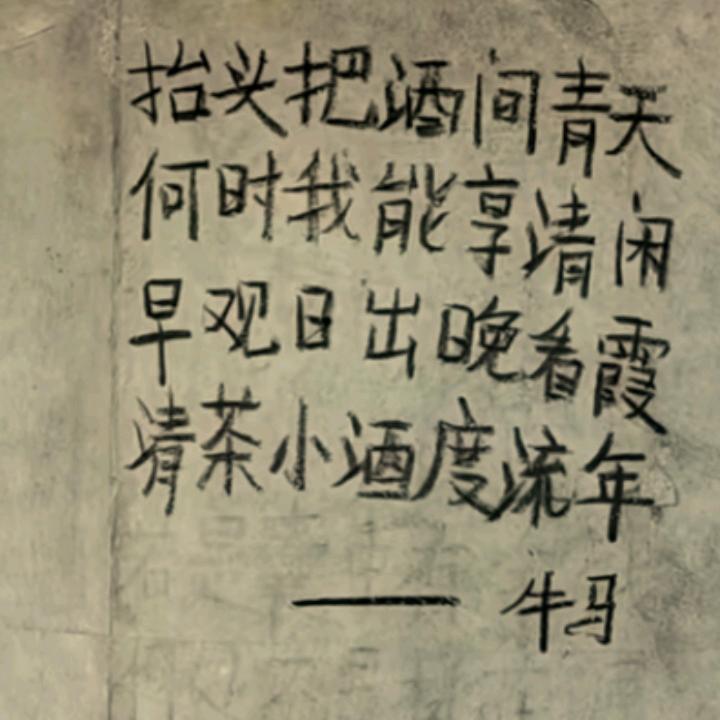 抬头把酒间青天
何时我能享清闲
早观日出晚看霞
清茶小酒度流年
—— 牛马